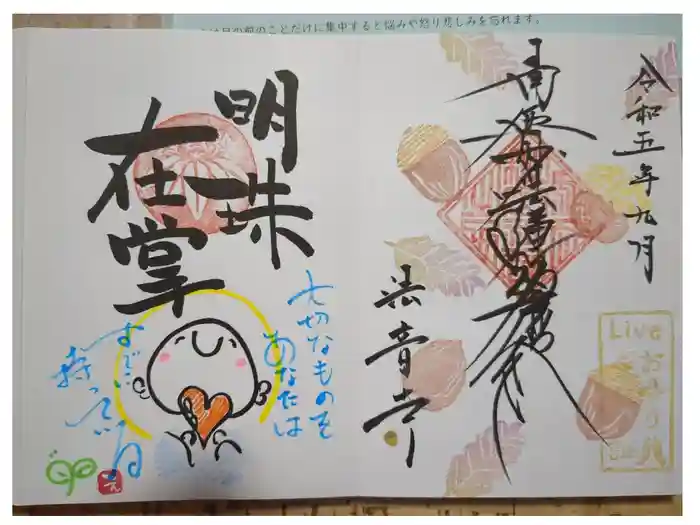 は目の前のことだけに集中すると悩みや怒り悲しみを忘れます。
令和五年九月
南無妙法蓮華経
法音寺
Live
おまいり
明珠
在掌
大切なものを
あなたは
すでに
持っている